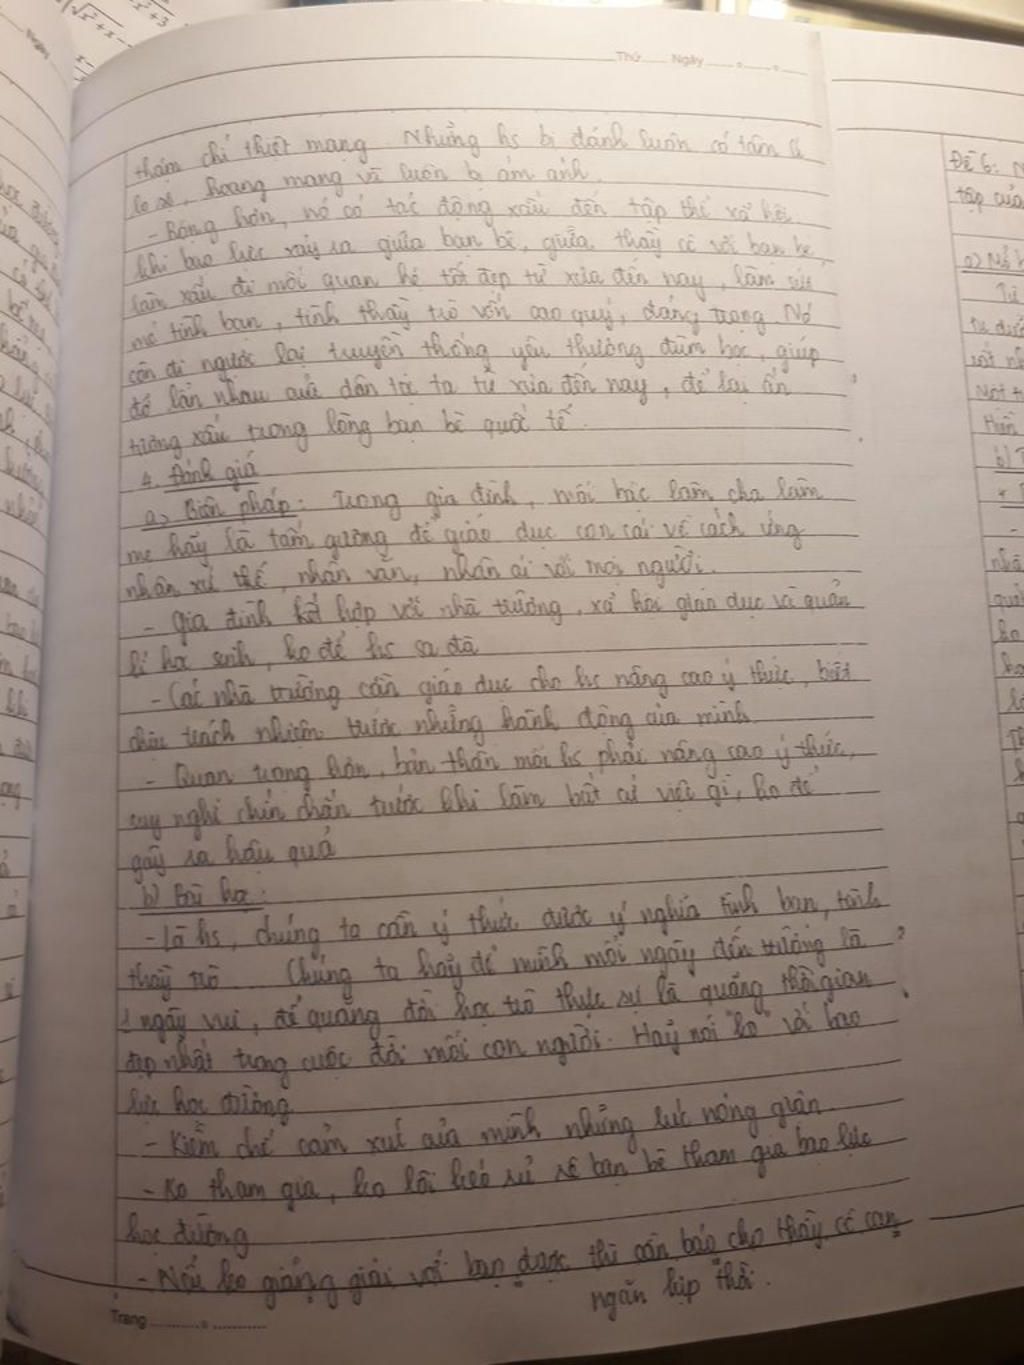 Thứ ...... Ngày ......
thậm chí thiệt mạng. Những hs bị đánh luôn có tâm lí
lo sợ, hoang mang và luôn bị ám ảnh.
- Rộng hơn, nó có tác động xấu đến tập thể xã hội.
khi bạo lực xảy ra giữa bạn bè, giữa thầy cô với bạn bè,
làm xấu đi mối quan hệ tốt đẹp từ xưa đến nay, làm sứt
mẻ tình bạn, tình thầy trò vốn cao quý, đáng trọng. Nó
còn đi ngược lại truyền thống yêu thương đùm bọc, giúp
đỡ lẫn nhau của dân tộc ta từ xưa đến nay, để lại ấn
tượng xấu trong lòng bạn bè quốc tế.
4. Đánh giá
a) Biện pháp: Trong gia đình, mỗi bậc làm cha làm
mẹ hãy là tấm gương để giáo dục con cái về cách ứng
nhân xử thế, nhân văn, nhân ái với mọi người.
- Gia đình kết hợp với nhà trường, xã hội giáo dục và quản
lí học sinh, ko để hs sa đà
- Các nhà trường cần giáo dục cho hs nâng cao ý thức, biết
chịu trách nhiệm trước những hành động của mình
- Quan trọng hơn, bản thân mỗi hs phải nâng cao ý thức,
suy nghĩ chín chắn trước khi làm bất cứ việc gì, ko để
gây ra hậu quả
b) Bài học:
- Là hs, chúng ta cần ý thức được ý nghĩa tình bạn, tình
thầy trò .... Chúng ta hãy để mình mỗi ngày đến trường là
1 ngày vui, để quãng đời học trò thực sự là quãng thời gian
đẹp nhất trong cuộc đời mỗi con người. Hãy nói "ko" với bạo
lực học đường
- Kiềm chế cảm xúc của mình những lúc nóng giận
- Ko tham gia, ko lôi kéo bạn bè tham gia bạo lực
học đường
- Nếu ko giảng giải với bạn được thì cần báo cho thầy cô can
ngăn kịp thời.
Trang ......
Đề 6:
tập của
a)
b)